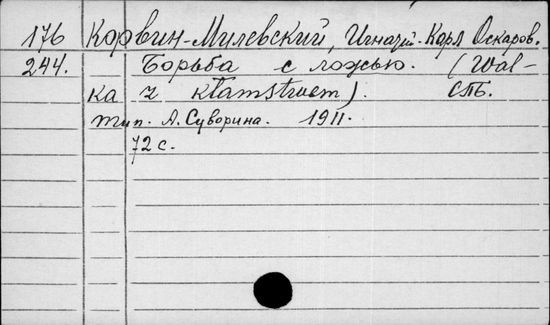 176 Корвин-Милевский, Игнатий-Карл Оскаров.
244. Борьба с ложью. (Wal-
ka z kłamstwem). СПБ.
тип. А. Суворина. 1911.
72 с.